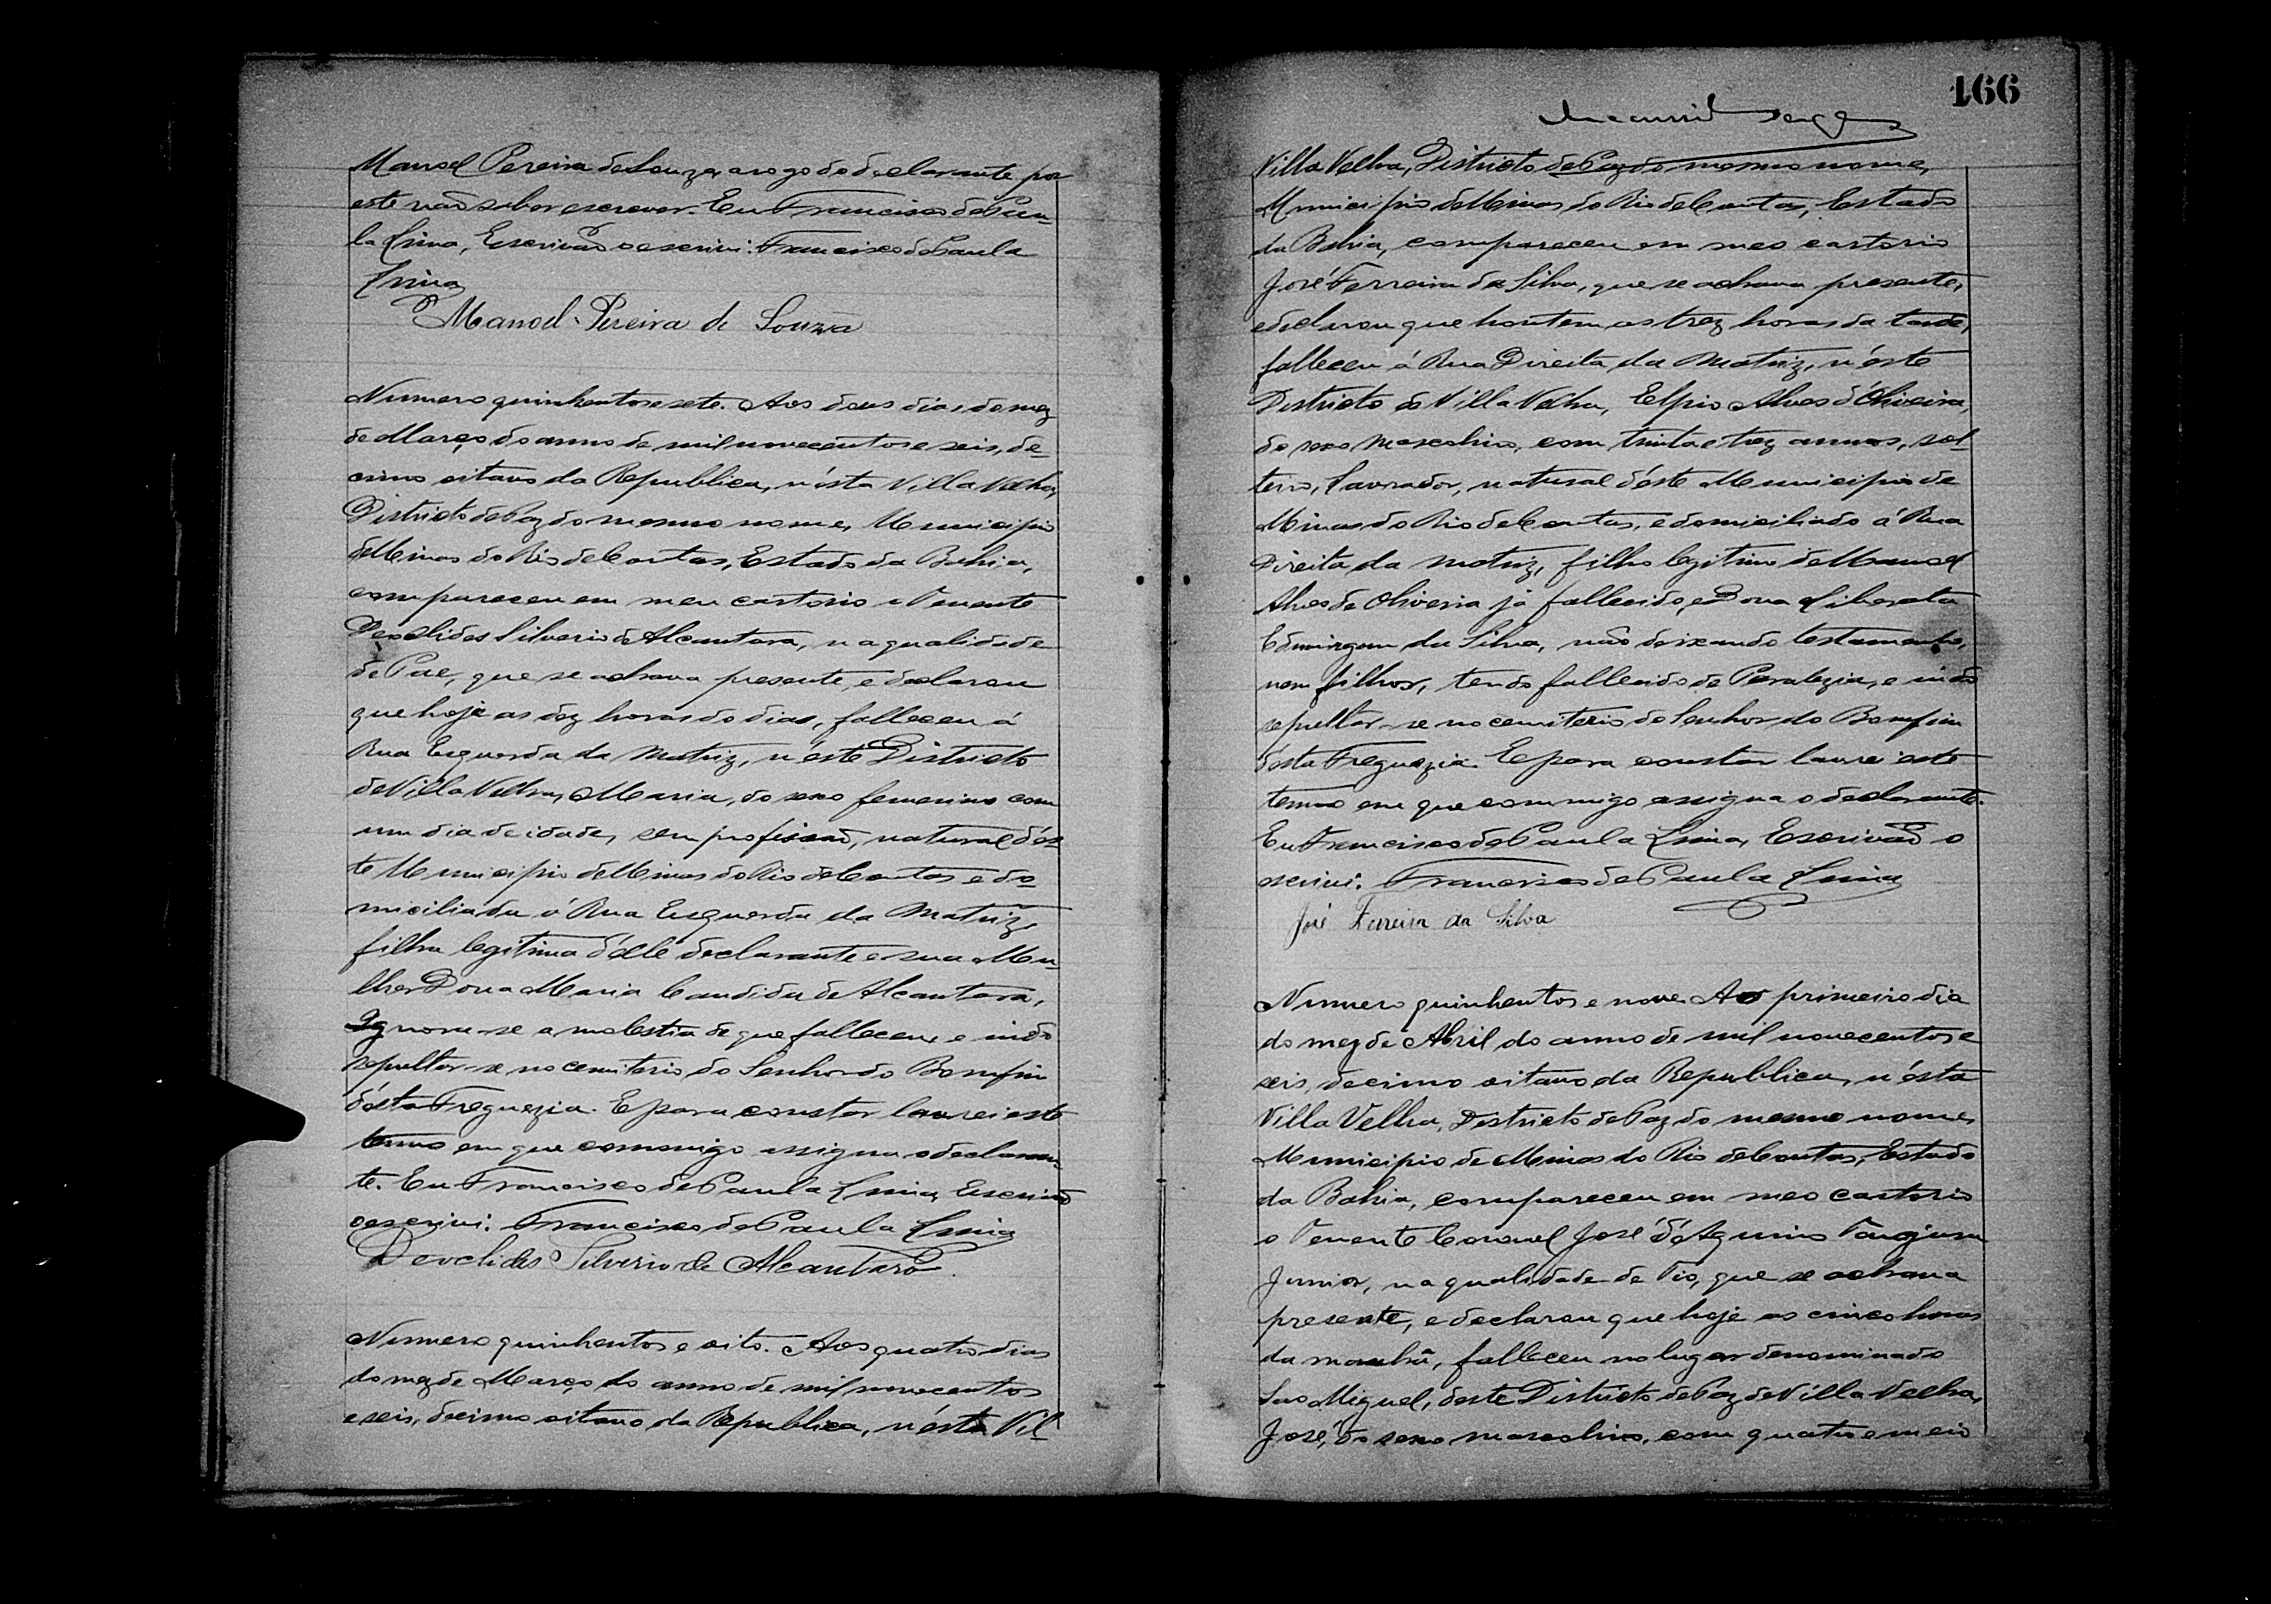 Manoel Pereira de Souza, a rogo do declarante por
este não saber escrever. Eu Francisco de Pau-
la Lima, Escrivão o escrivi. Francisco de Paula
Lima
Manoel Pereira de Souza
Numero quinhentos e sete. Aos dous dias do mez
de Março do anno de mil novecentos e seis, de-
cimo oitavo da Republica, n'ésta Villa Velha,
Districto de Paz do mesmo nome, Municipio
de Minas do Rio de Contas, Estado da Bahia,
compareceu em meu cartorio o Tenente
Deoclides Silverio de Alcantara, na qualidade
de Pae, que se achava presente, e declarou
que hoje as dez horas do dia, falleceu á
Rua Esquerda da Matriz, n'éste Districto
de Villa Velha, Maria, do sexo femenino com
um dia de idade, sem profissaõ, natural d'és-
te Municipio de Minas do Rio de Contas e do-
miciliada á Rua Esquerda da Matriz,
filha legitima d'élle declarante e sua Mu-
lher Dona Maria Candida de Alcantara,
Ignora-se a molestia de que falleceu, e indo
sepultar-se no cemiterio do Senhor do Bomfim
d'ésta Freguezia. E para constar lavrei este
termo em que commigo assigna o declaran-
te. Eu Francisco de Paula Lima, Escrivaõ
o escrivi. Francisco de Paula Lima
Deoclides Silverio de Alcantara
Numero quinhentos e oito. Aos quatro dias
do mez de Março do anno de mil novecentos
e seis, decimo oitavo da Republica, n'ésta Vil-
166
Villa Velha, Districto de Paz do mesmo nome,
Municipio de Minas do Rio de Contas, Estado
da Bahia, compareceu em meo cartorio
José Ferreira da Silva, que se achava presente,
e declarou que hontem as trez horas da tarde,
falleceu á Rua Direita da Matriz, n'éste
Districto de Villa Velha, Elpio Alves d'Oliveira,
do sexo masculino, com trinta e trez annos, sol-
teiro, Lavrador, natural d'éste Municipio de
Minas do Rio de Contas, e domiciliado á Rua
Direita da Matriz, filho legitimo de Manoel
Alves de Oliveira já fallecido, e Dona Liberata
da Silva, não deixando testamento,
nem filhos, tendo fallecido de Paralezia, e indo
sepultar-se no cemiterio do Senhor do Bomfim
d'ésta Freguezia. E para constar lavrei este
termo em que commigo assigna o declarante.
Eu Francisco de Paula Lima, Escrivaõ o
escrivi. Francisco de Paula Lima
José Ferreira da Silva
Numero quinhentos e nove. Aos primeiro dia
do mez de Abril do anno de mil novecentos e
seis, decimo oitavo da Republica, n'ésta
Villa Velha, Districto de Paz do mesmo nome,
Municipio de Minas do Rio de Contas, Estado
da Bahia, compareceu em meo cartorio
o Tenente Coronel José d'Aquino Tanajura
Junior, na qualidade de Tio, que se achava
presente, e declarou que hoje as cinco horas
da manhã, falleceu no lugar denominado
Sao Miguel, deste Districto de Paz de Villa Velha,
José, do sexo masculino, com quatro e meio